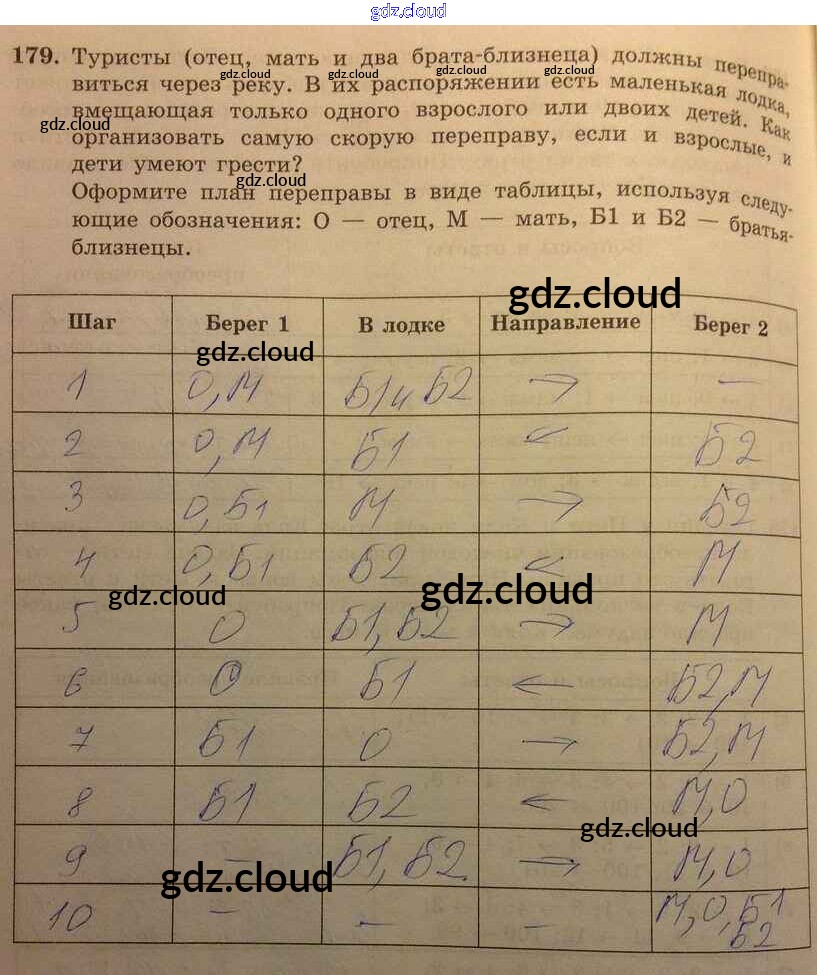 gdz.cloud
179. Туристы (отец, мать и два брата-близнеца) должны перепра-
gdz.cloud gdz.cloud gdz.cloud
виться через реку. В их распоряжении есть маленькая лодка,
вмещающая только одного взрослого или двоих детей. Как
gdz.cloud
организовать самую скорую переправу, если и взрослые, и
дети умеют грести?
gdz.cloud
Оформите план переправы в виде таблицы, используя следу-
ющие обозначения: О — отец, М — мать, Б1 и Б2 — братья-
близнецы.
gdz.cloud
Шаг Берег 1 В лодке Направление Берег 2
gdz.cloud
1 О, М Б1 и Б2 → –
2 О, М Б1 ← Б2
3 О, Б1 М → Б2
4 О, Б1 Б2 ← М
gdz.cloud gdz.cloud
5 О Б1, Б2 → М
6 О Б1 ← Б2, М
7 Б1 О → Б2, М
8 Б1 Б2 ← М, О
gdz.cloud
9 – Б1, Б2 → М, О
gdz.cloud
10 – – – М, О, Б1
Б2